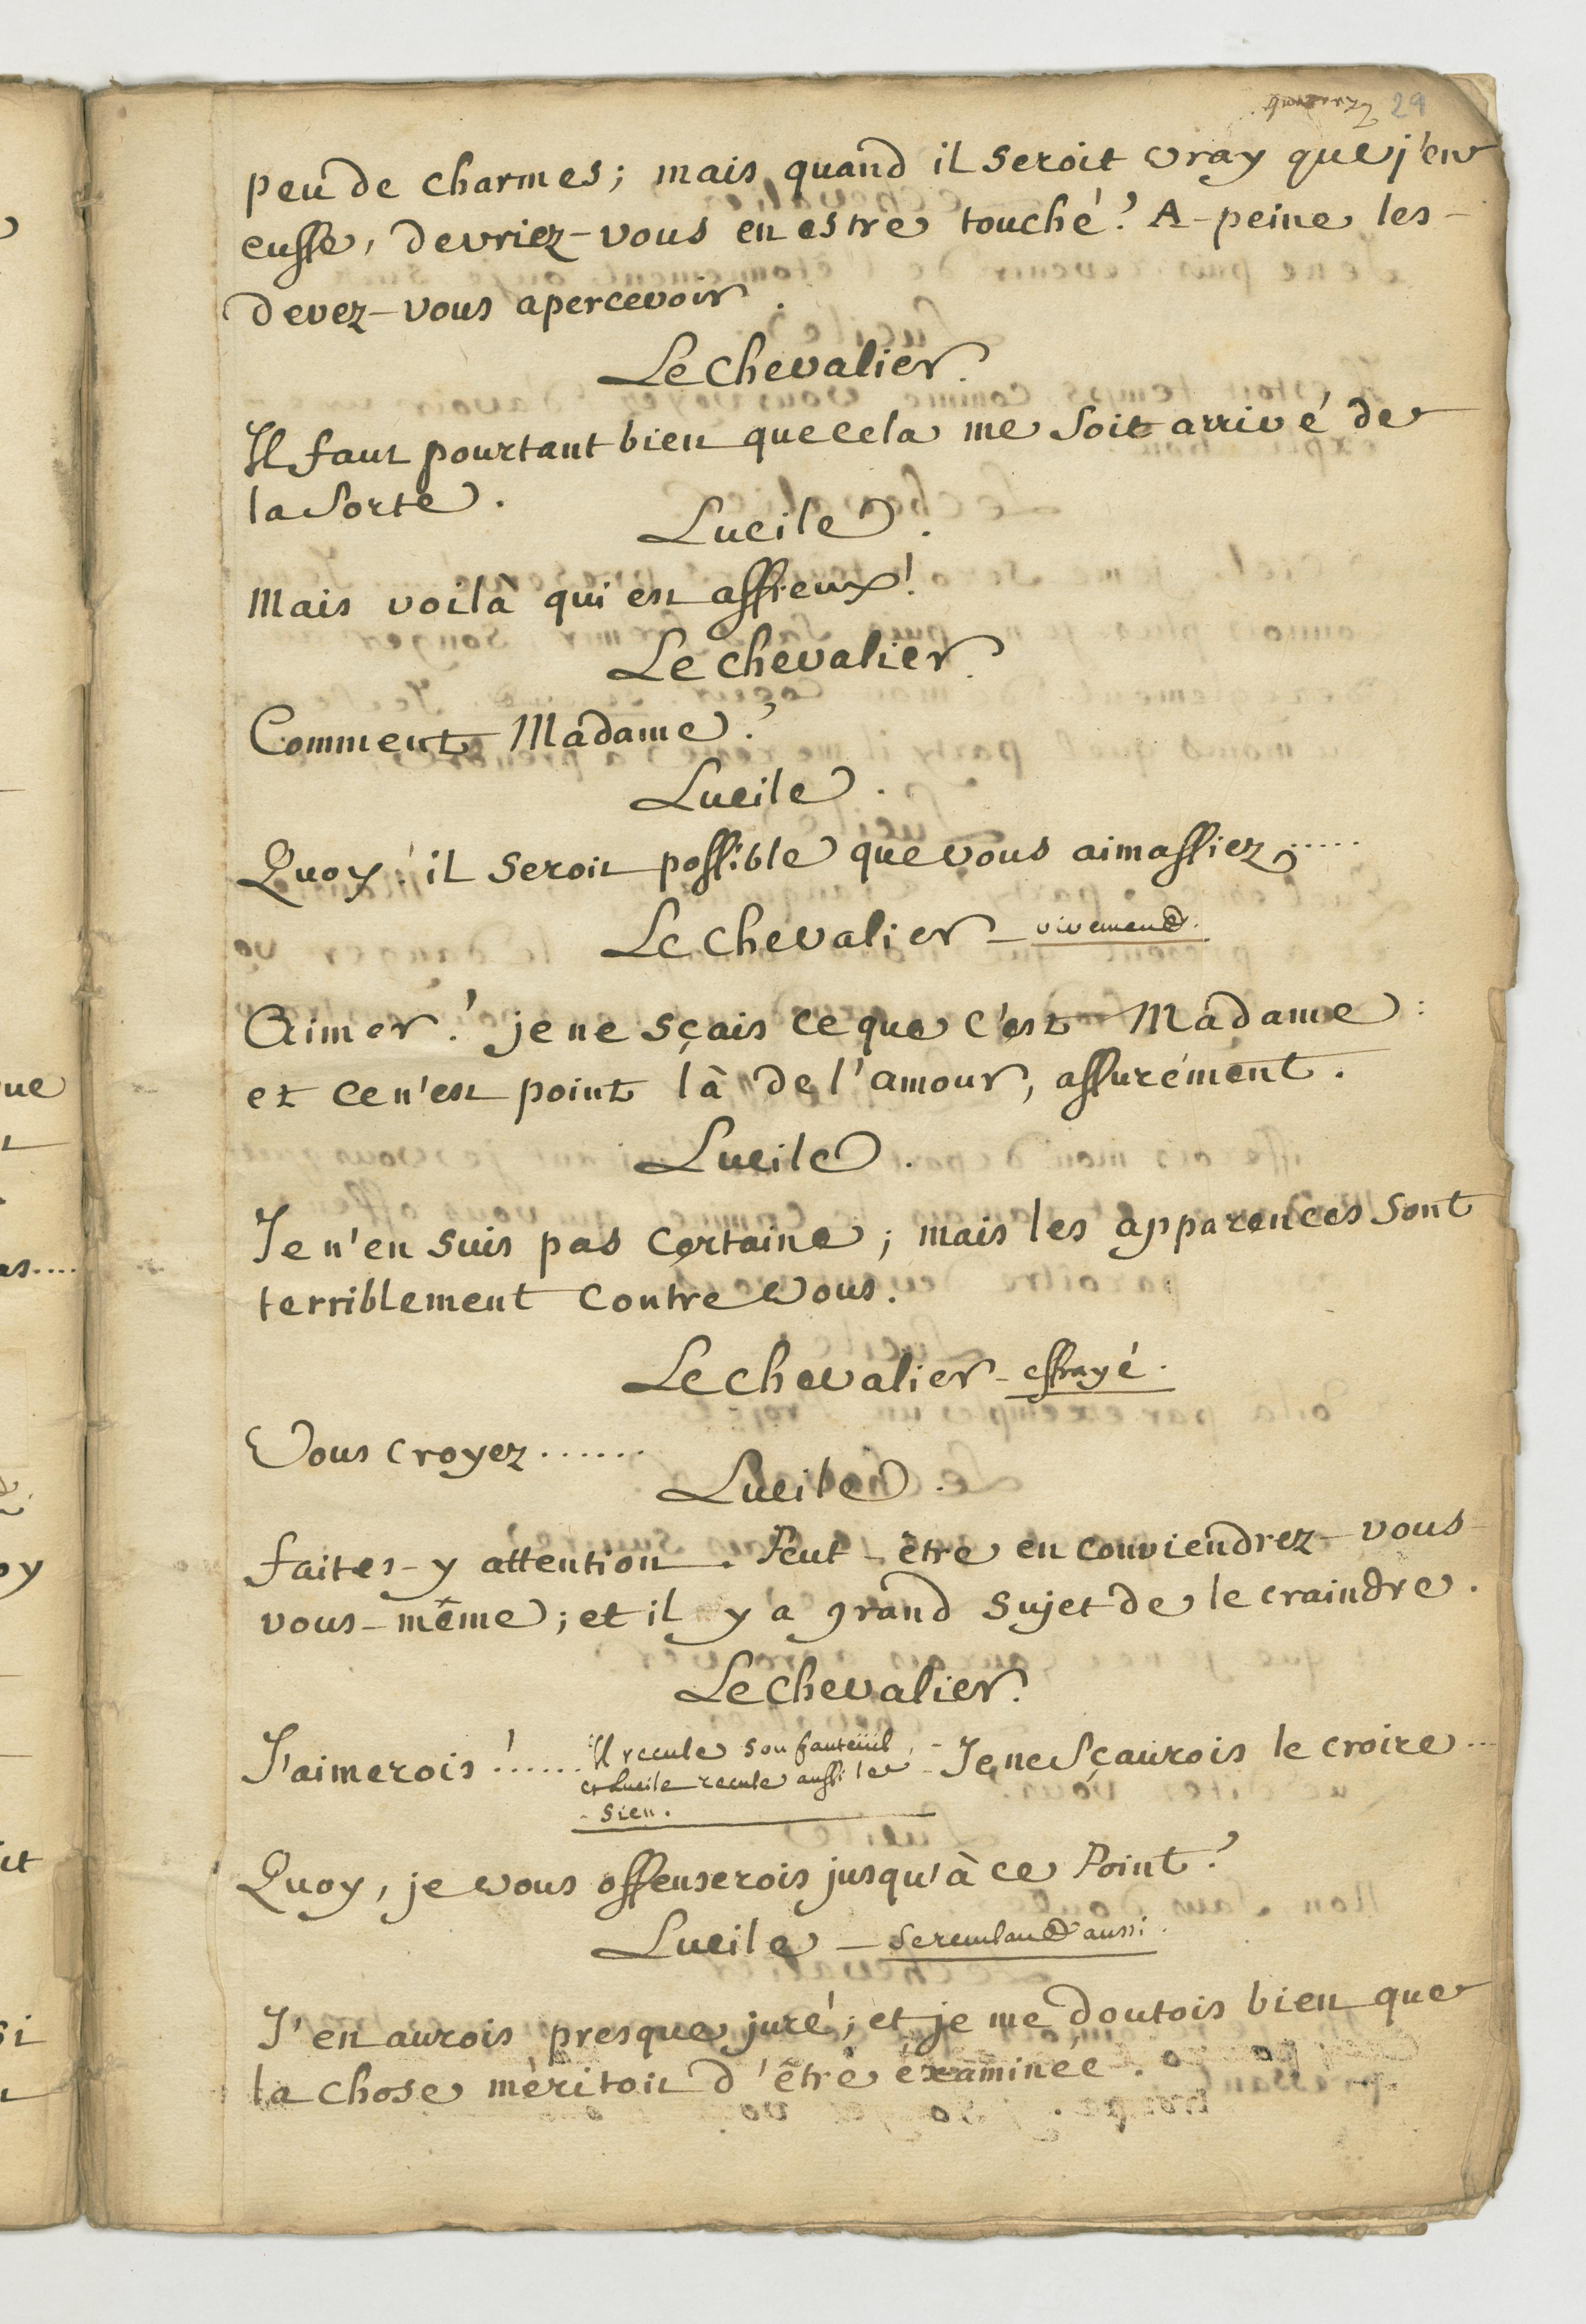 29
peu de charmes; mais quand il seroit vray que j'en
eusse, devriez-vous en estre touché? A-peine les
devez-vous apercevoir.
Le chevalier.
Il faut pourtant bien que cela me soit arrivé de
la sorte.
Lucile.
Mais voilà qui est affreux!
Le chevalier.
Comment Madame?
Lucile.
Quoy! il seroit possible que vous aimassiez.....
Le chevalier - vivement.
Aimer! je ne sçais ce que c'est Madame:
et ce n'est point là de l'amour, assurément.
Lucile.
Je n'en suis pas certaine; mais les apparences sont
terriblement contre vous.
Le chevalier - effrayé.
Vous croyez......
Lucile.
faites-y attention. Peut-être en conviendrez-vous
vous-même; et il y a grand sujet de le craindre.
Le chevalier.
J'aimerois!...... Il recule son fauteüil, - Je ne sçaurois le croire...
et Lucile recule aussi le
sien.
Quoy, je vous offenserois jusqu'à ce Point?
Lucile - se reculant aussi.
J'en aurois presque juré; et je me doutois bien que
la chose méritoit d'être éxaminée.